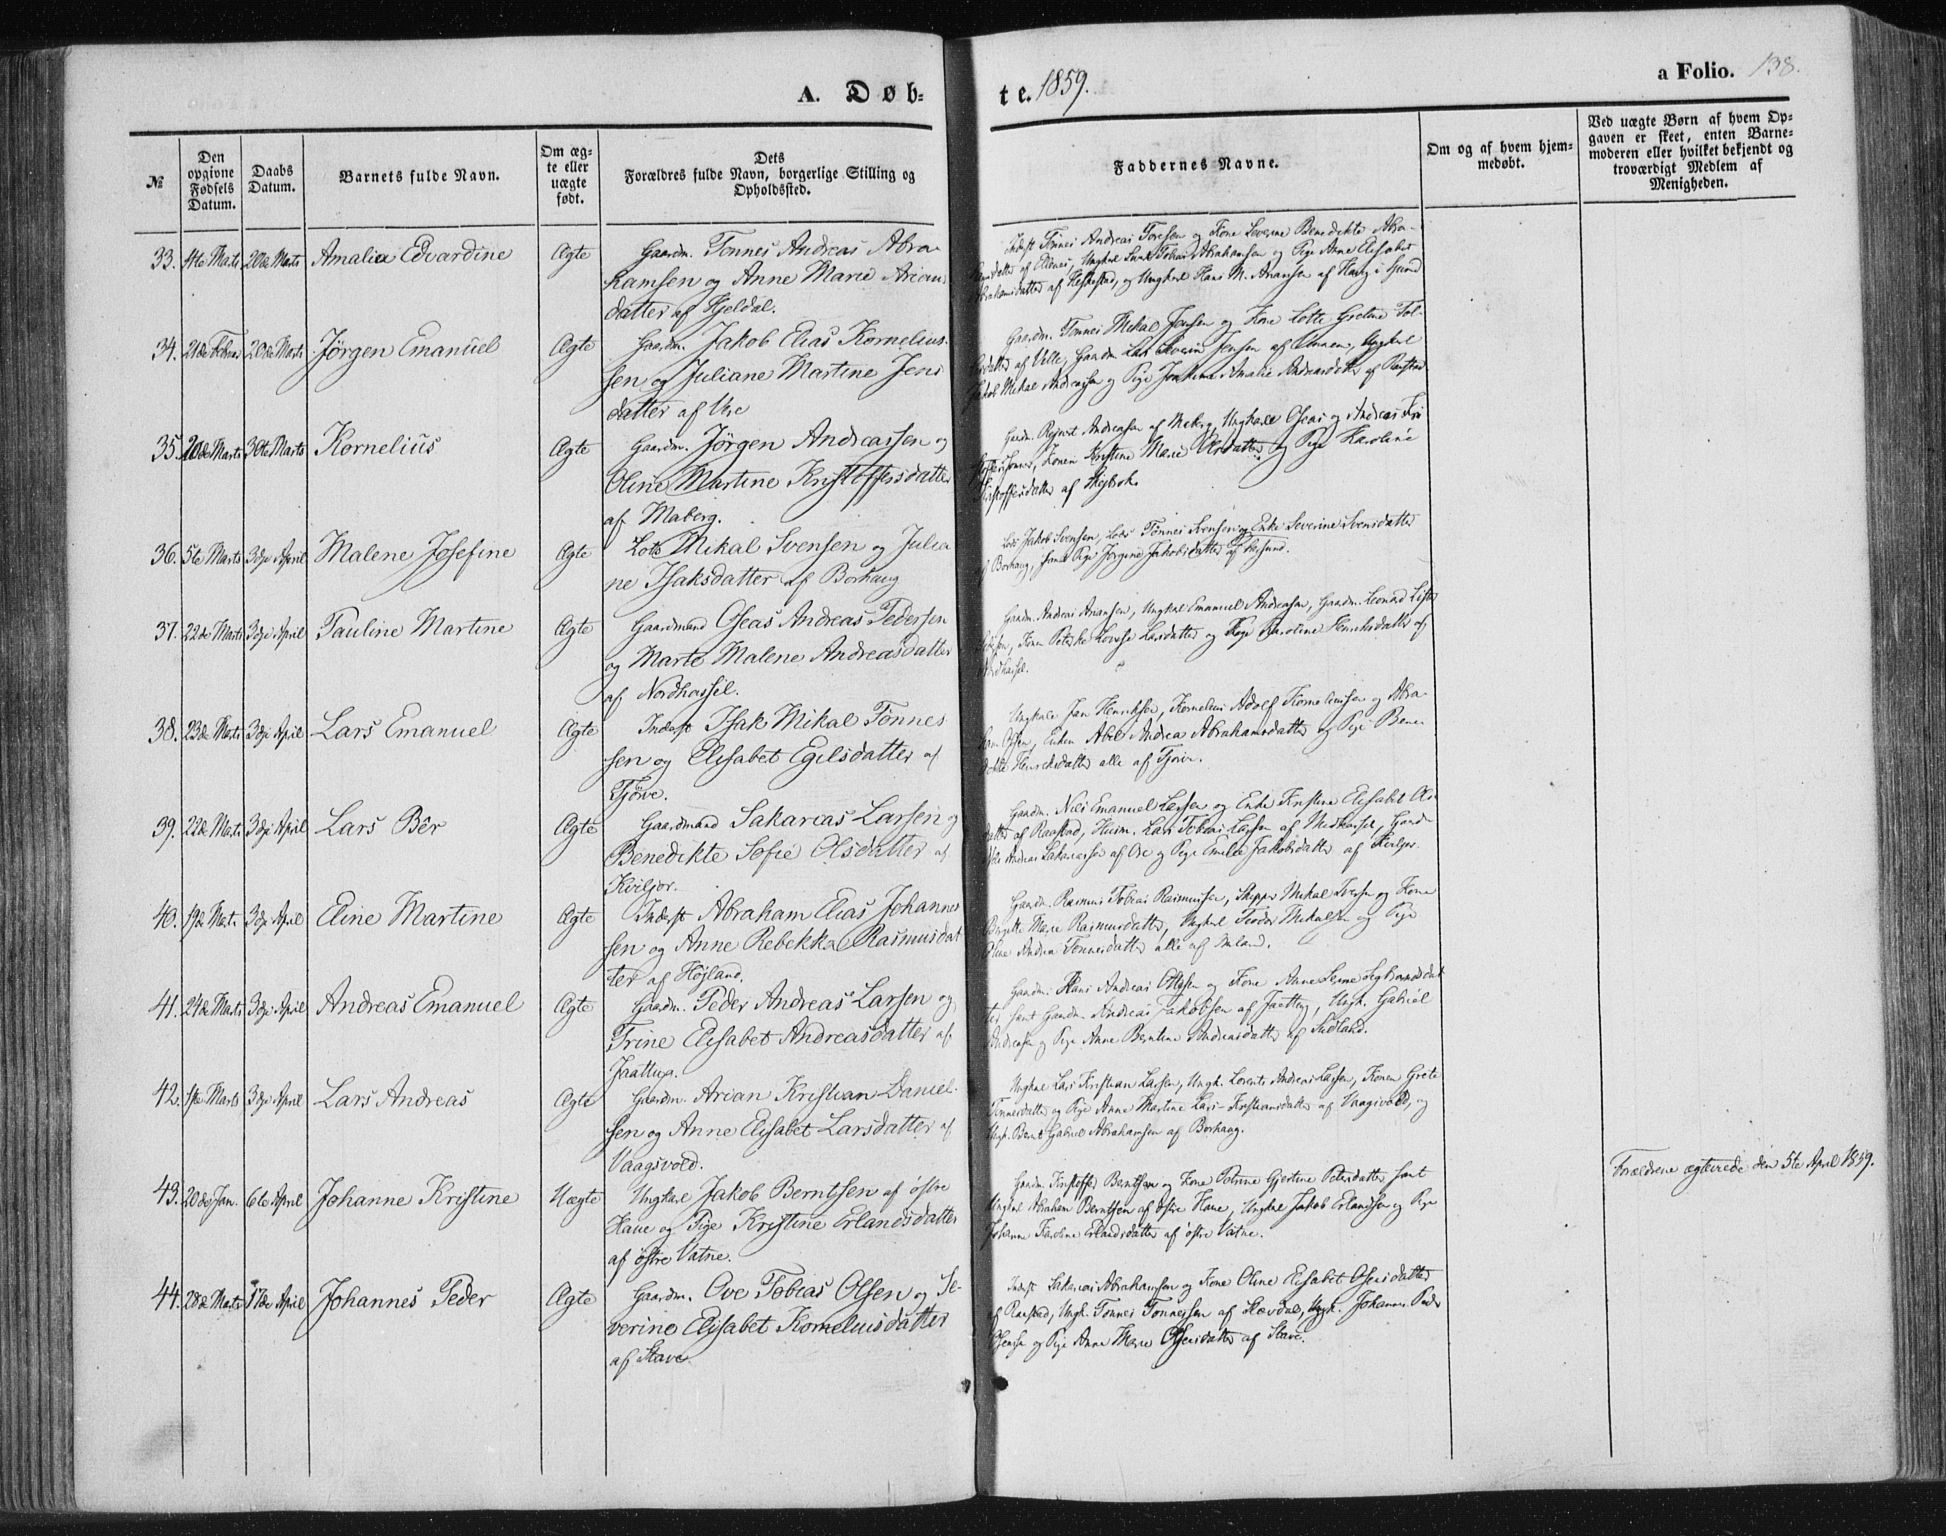 A. Døb-
te. 1859.
a Folio. 138.
№
Den opgivne Fødsels Datum.
Daabs Datum.
Barnets fulde Navn.
Om ægte eller uægte født.
Dets Forældres fulde Navn, borgerlige Stilling og Opholdssted.
Faddernes Navne.
Om og af hvem hjemmedøbt.
Ved uægte Børn af hvem Opgaven er skeet, enten Barnemoderen eller hvilket bekjendt og troværdigt Medlem af Menigheden.
33. Marts 20de Marts Amalia Edvardine Ægte Gaardm. Tönnes Andreas Abra-
hamsen og Anne Marie Arian
datter af Kjeldal.
Inderst Tönnes Andreas Toresen og Kone Severine Benedikte Abra-
hamsdatter af Ellenes, Ungkarl Tobias Abrahamsen og Pige Anne Elisabet
Abrahamsdatter af Heskestad, og Ungkarl Hans M. Anansen af Haug i Hund
34. 21de Februar 20de Marts Jörgen Emanuel Ægte Gaardm. Jakob Elias Kornelius-
sen og Juliane Martine Jens
datter af Ore
Gaardm. Tönnes Mikal Jensen og Kone Lotte Greline Tol-
datter af Velle, Gaardm. Lars Severin Jensen af Ungkarl
Jakob Mikal Andreassen og Pige Joakime Amalie Andreasdatter af Raustad
35. 20de Marts 30te Marts Kornelius Ægte Gaardm. Jörgen Andreassen og
Oline Martine Kristoffersdatter
af Maberg.
Gaardm. Reinert Andreassen af Meberg, Ungkarle Oseas og Andreas Kri
stofferssönner, Konen Kristine Marie Olsdatter og Pige Karoline
Kristoffersdatter af
36. 5te Marts 3dje April Malene Josefine Ægte Lots Mikal Svensen og Julia
ne Isaksdatter af Borhaug
Lots Jakob Svensen, Lots Tönnes Svensen og Enke Severine Svensdatter
af Borhaug, samt Pige Jörgine Jakobsdatter af
37. 22de Marts 3dje April Pauline Martine Ægte Gaardmand Oseas Andreas Pedersen
og Marte Malene Andreasdatter
af Nordhassel.
Gaardm. Andreas Anansen, Ungkarl Emanuel Andreassen, Gaardm. Leonard Lister
Konen Lovise Larsdatter og Pige Karoline Henriksdatter af
Nordhassel.
38. 23de Marts 3dje April Lars Emanuel Ægte Inderst Isak Mikal Tönnes
sen og Elisabet Egilsdatter af
Tjörve.
Ungkarle Jan Henriksen, Kornelius Adolf Korneliussen og Abra-
ham Olsen, Enken Abel Andrea Abrahamsdatter og Pige Bene
dikte Henriksdatter alle af Tjörve.
39. 22de Marts 3dje April Lars Bêr Ægte Gaardmand Sakarias Larsen og
Benedikte Sofie Olsdatter af
Kviljor.
Gaardm. Nils Emanuel Larsen og Enke Kristine Elisabet Ols
datter af Raustad, Huusm. Lars Tobias Larsen af Midthassel, Gaardm.
Andreas Sakariassen af Ore og Pige Emilie Jakobsdatter af Kviljor.
40. Marts 3dje April Eline Martine Ægte Inderst Abraham Elias Johannes
sen og Anne Rebekka Rasmusdat
ter af Höjland.
Gaardm. Rasmus Tobias Rasmussen, Skipper Mikal Iversen og Kone
Birgitte Marie Rasmusdatter, Ungkarl Teodor Mikalsen og Pige
Oline Andrea Tönnesdatter alle af
41. 24de Marts 3dje April Andreas Emanuel Ægte Gaardm. Peder Andreas Larsen og
Trine Elisabet Andreasdatter af
Jaattog.
Gaardm. Hans Andreas Ottesen og Kone Anne Serine Sigbjörnsdat
ter samt Gaardm. Andreas Jakobsen af Jaattog, Ungk. Gabriel
Andreassen og Pige Anne Berntine Andreasdatter af Sudland.
42. Marts 3dje April Lars Andreas Ægte Gaardm. Arian Kristian Daniel-
sen og Anne Elisabet Larsdatter af
Vaagsvold.
Ungkarl Lars Kristian Larsen, Ungk. Lorents Andreas Larsen, Konen Grete
Tönnesdatter og Pige Anne Martine Lars-Kristiansdatter af Vaagsvold, og
Ungk. Bernt Gabriel Abrahamsen af Borhaug.
43. 20de Jan. 6te April Johanne Kristine Uægte Ungkarl Jakob Berntsen af östre
Haue og Pige Kristine Erlandsdatter
af östre Vatne.
Gaardm. Kristoffer Berntsen og Kone Petrine Gjertine Petersdatter samt
Ungkarl Abraham Berntsen af östre Haue, Ungkarl Jakob Erlandsen og Pige
Johanne Karoline Erlandsdatter af östre Vatne.
Forældrene ægteviede den 5te April 1859.
44. 28de Marts 17de April Johannes Peder Ægte Gaardm. Ove Tobias Olsen og Se-
verine Elisabet Korneliusdatter
af Stave
Inderst Sakarias Abrahamsen og Kone Oline Elisabet Osensdatter
af Raustad, Ungk. Tönnes Tönnessen af Skevdal, Ungk. Johannes Peder
Osensen og Pige Anne Marie Osensdatter af Stave.